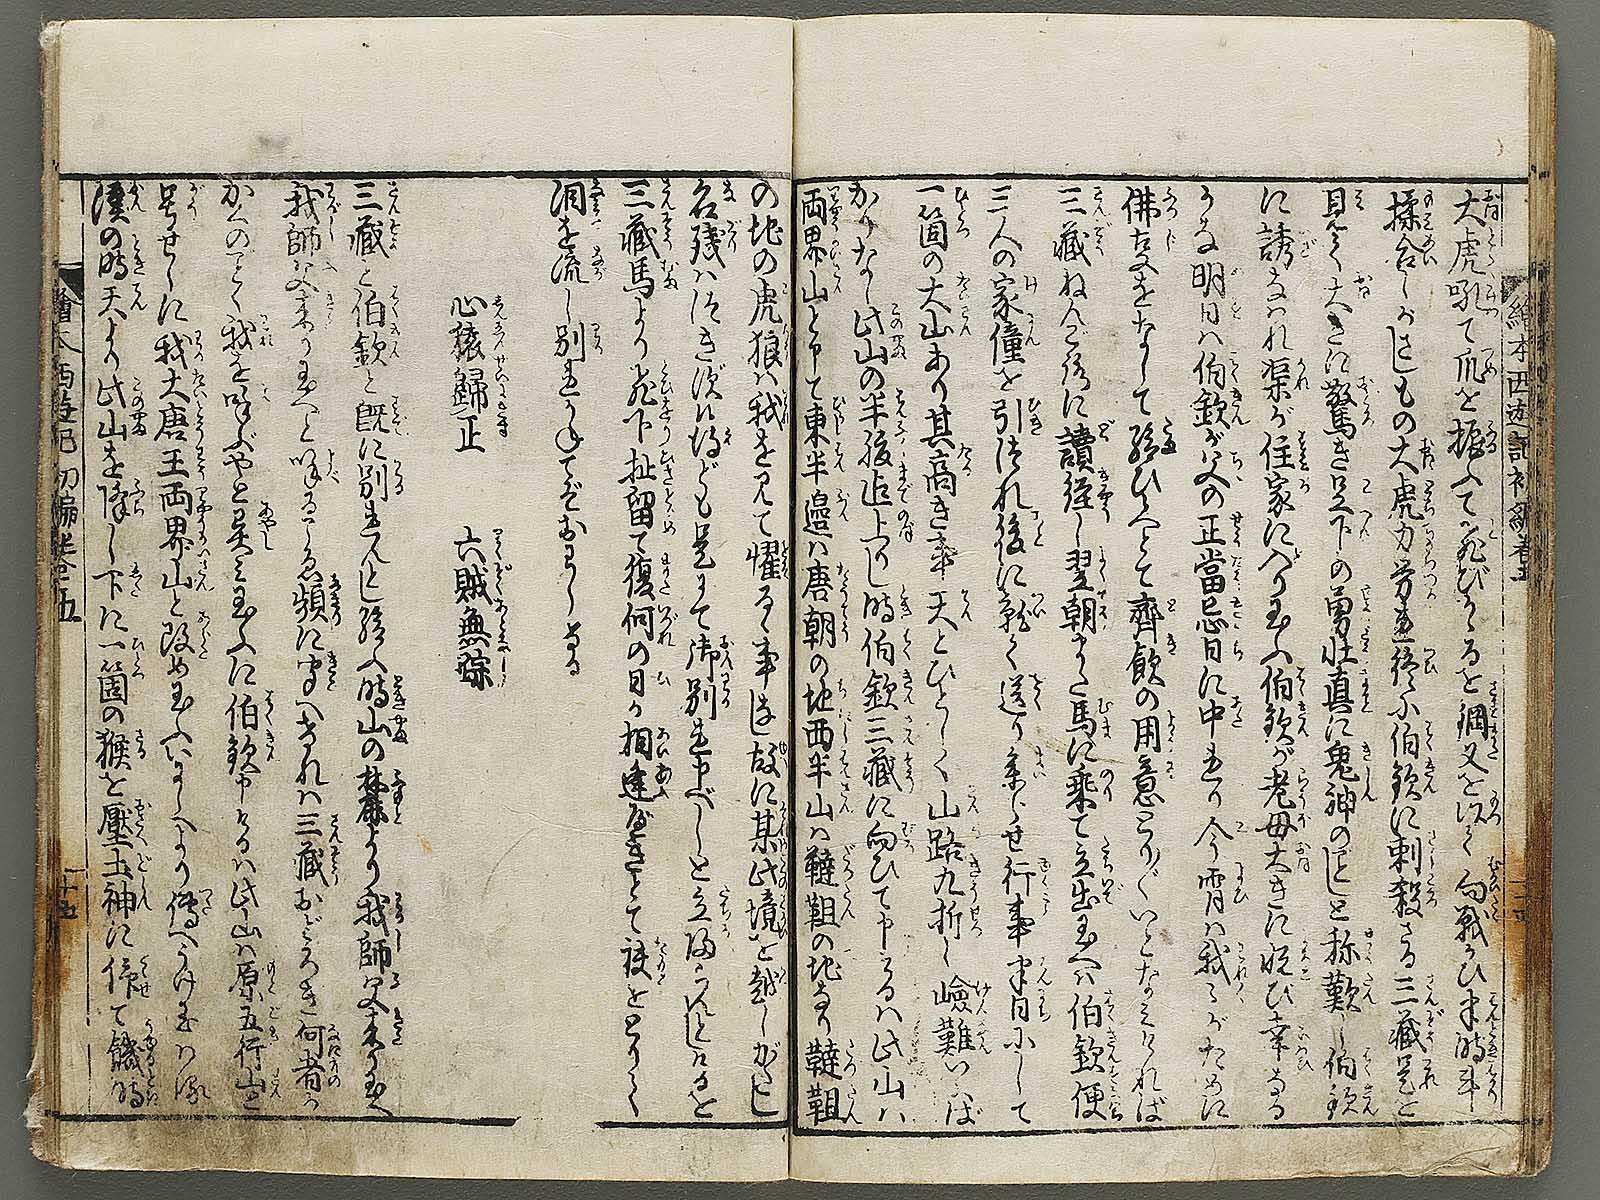 繪本西遊記初編卷五
大虎吼て爪を振ふて飛びかゝるを鋼叉を以て向戦ひ半時斗
揉合しがさしもの大虎力労連終に伯欽に刺殺さる三藏是を
見て大きに驚き足下の勇壮真に鬼神のごとしと称歎し伯欽
に誘なはれ渠が住家に入り玉ふ伯欽が老母大きに悦び幸なる
かな明日は伯欽が父の正當忌日に中れり今宵は我々がために
佛事をなして給ひへとて齊飲の用意とり〴〵いとなみければ
三藏ねんごろに讀経し翌朝また馬に乗て立出玉へば伯欽便
三人の家僮を引つれ後に就て送り参らせ行事半日にして
一箇の大山あり其高き事天とひとしく山路九折し嶮難いはば
かりなし此山の半後迄上りし時伯欽三藏に向ひて申るは此山は
両界山と申て東半邉は唐朝の地西半山は韃靼の地なり韃靼
の地の虎狼は我を見て懼るゝ事なき故に某此境を越しがたし
名残はつき次共是にて御別れ申べしと立帰らんとしけるを
三藏馬より飛下扯留て復何の日か相逢べきとて袂をとらへ
泪を流し別れかねてぞおわしける
心猿歸正　六賊無踪
三藏と伯欽と既に別れんとし給ふ時山の麓より我師父来り玉へ
我師父来り玉へと呼るこゑ頻に聞へければ三藏おどろき何者か
かくのごとく我を呼ぶやと異み玉ふに伯欽申けるは此山は原五行山と
号せしに我大唐王両界山と改め玉ふいにしへより傳へうけ玉はる
漢の時天より此山を降し下に一箇の猴を壓土神に仰て饑時
繪本西遊記初編卷五
十五